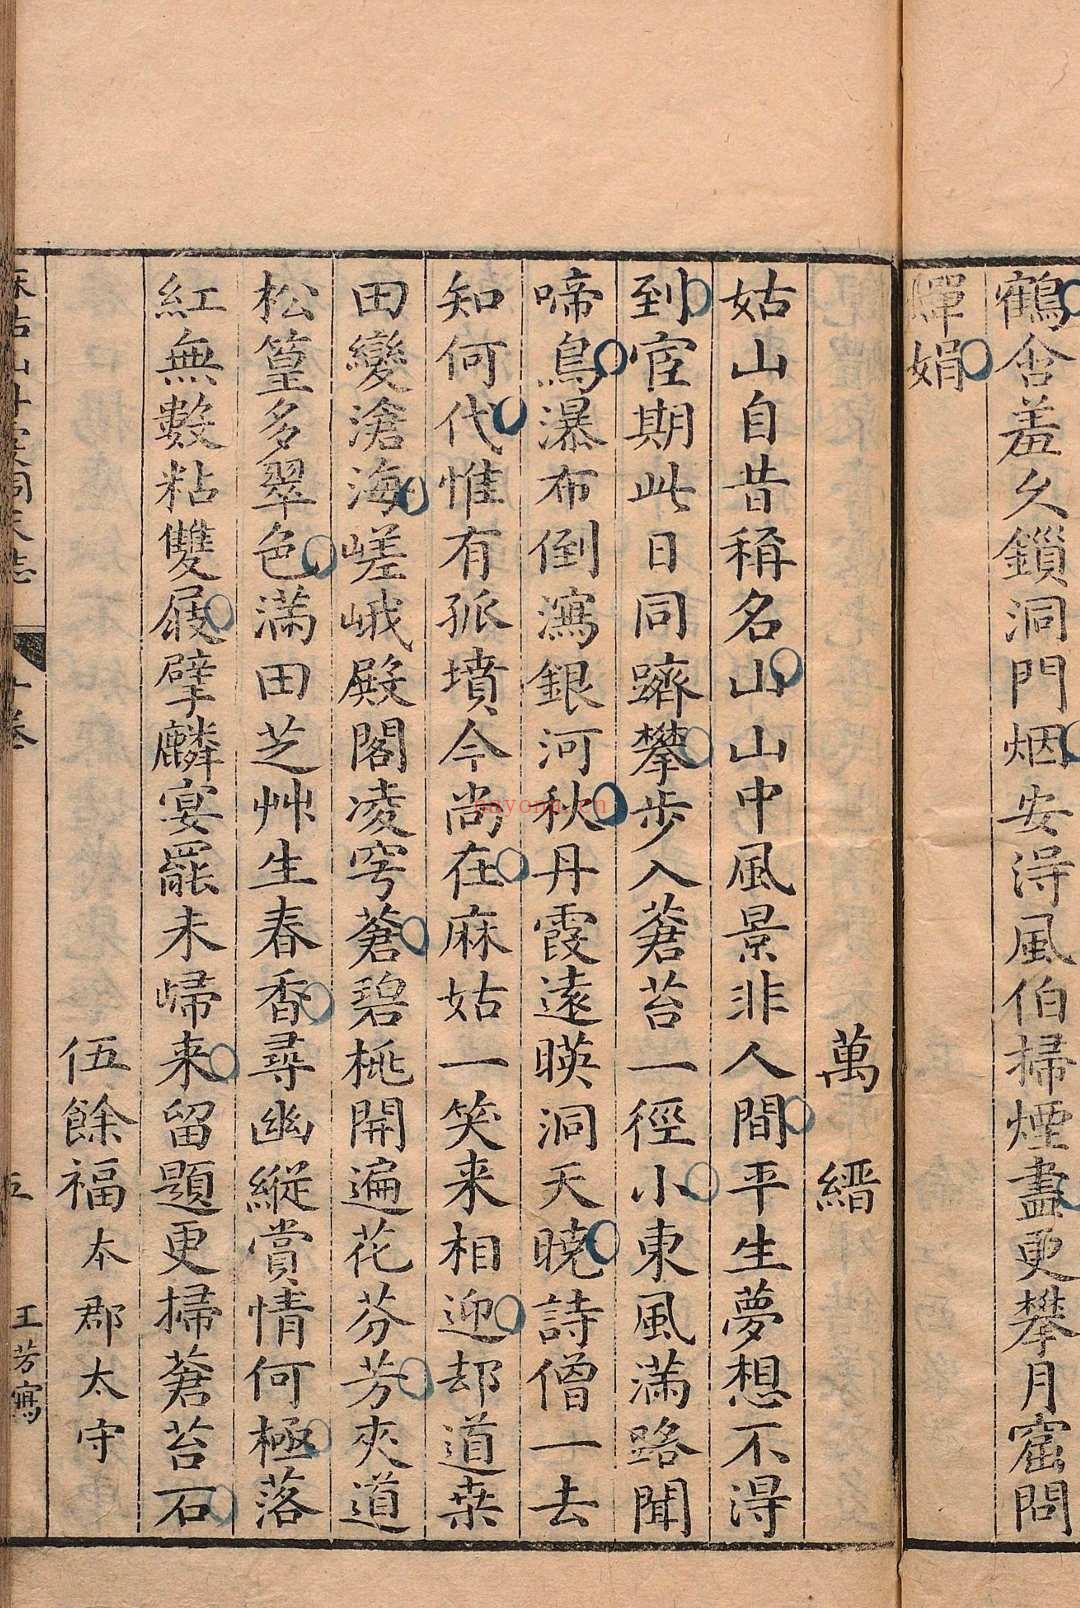 鶴含羞久鎖洞門烟安淂風伯掃煙盡更攀月窟問
嬋娟
萬縉
姑山自昔稱名山山中風景非人間平生夢想不淂
到宦期此日同躋攀步入蒼苔一徑小東風滿路聞
啼鳥瀑布倒瀉銀河秋丹霞遠暎洞天曉詩僧一去
知何代惟有孤墳今尚在麻姑一笑来相迎却道桒
田變滄海嵯峨殿閣凌穹蒼碧桃開遍花芬芳夾道
松篁多翠色滿田芝艸生春香尋幽縱賞情何極落
紅無數粘雙屐擘麟宴罷未歸来留題更掃蒼苔石
伍餘福本郡太守
麻姑山丹霞洞天志 十卷 五 王芳寫
hayong.cn